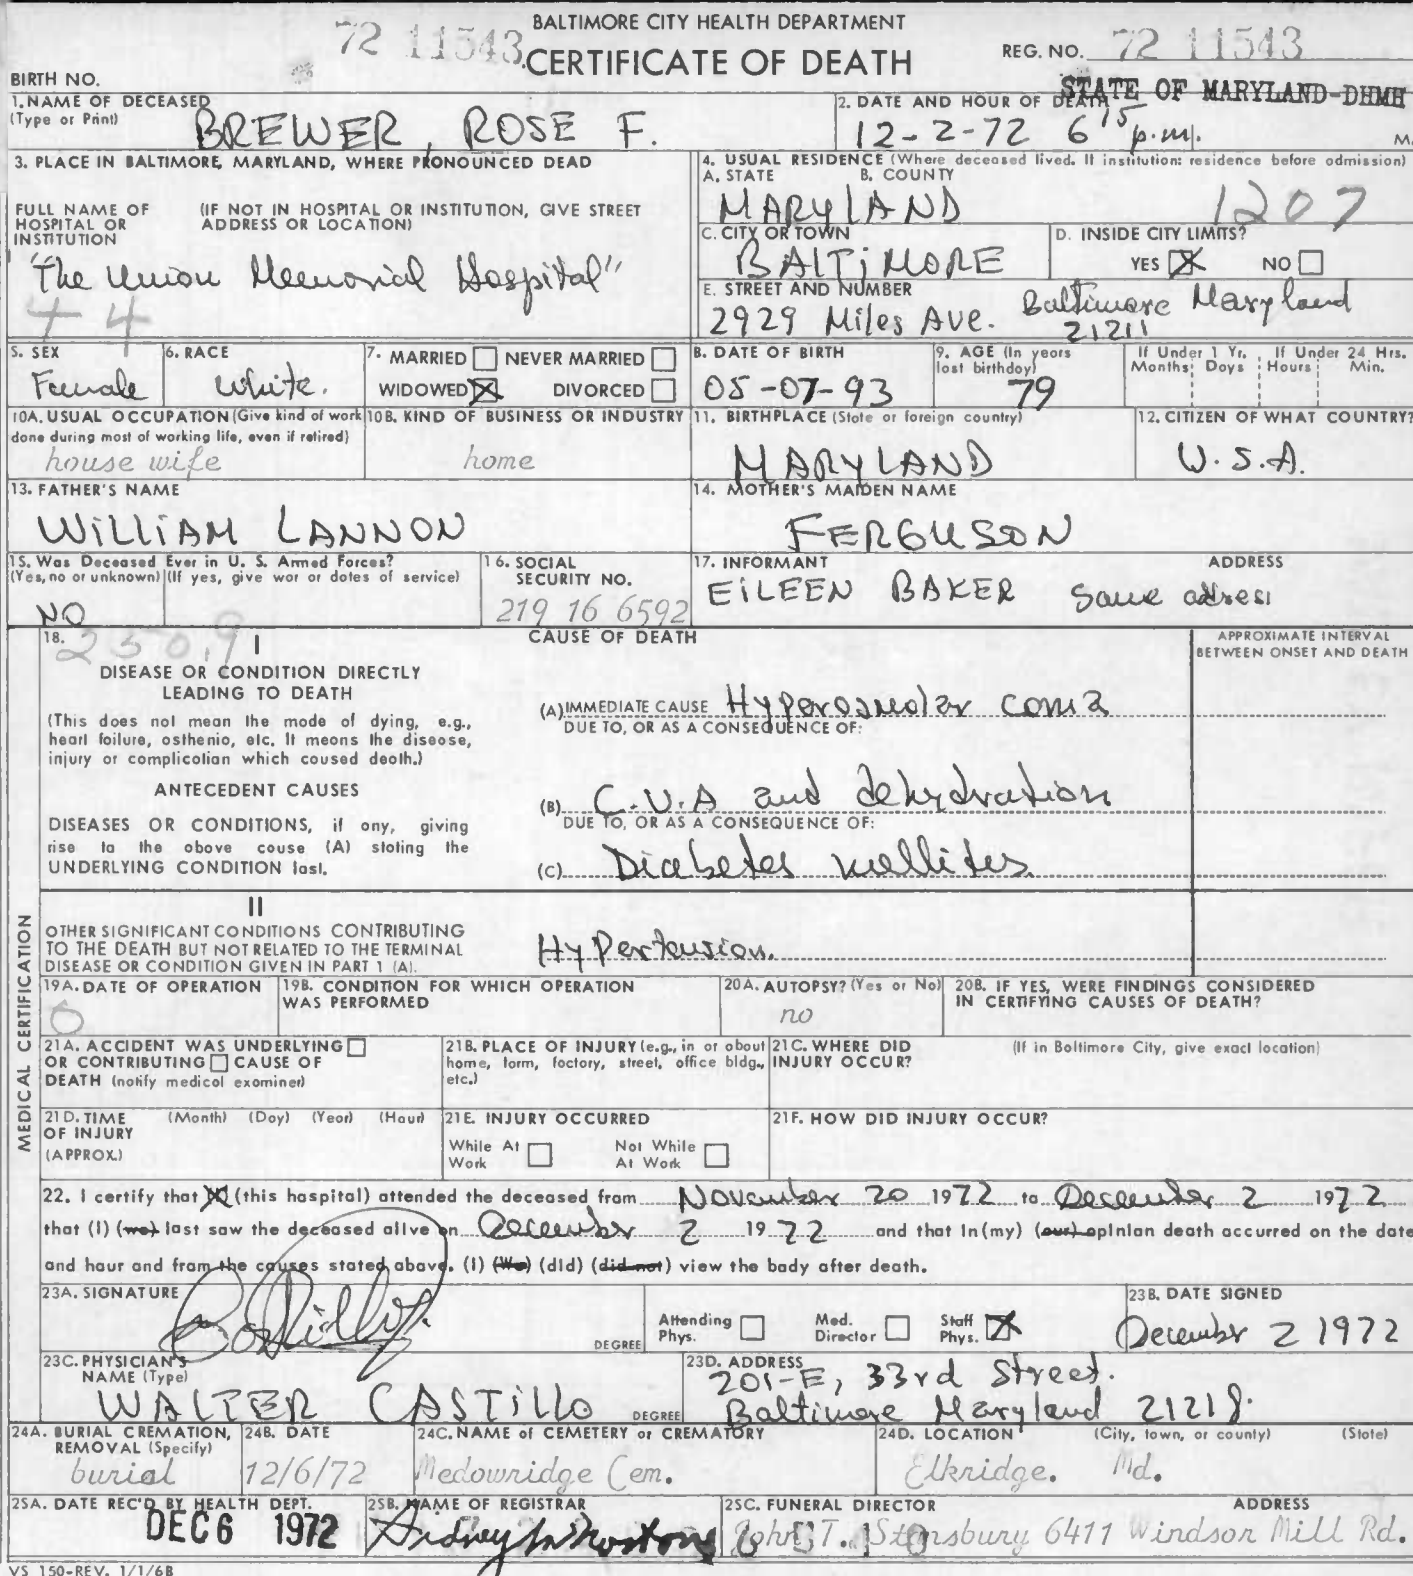 BALTIMORE CITY HEALTH DEPARTMENT
72 11543 CERTIFICATE OF DEATH REG. NO. 72 11543
BIRTH NO. STATE OF MARYLAND-DHMH
1. NAME OF DECEASED (Type or Print) BREWER, ROSE F.
2. DATE AND HOUR OF DEATH 12-2-72 6 15 p.m. M.
3. PLACE IN BALTIMORE, MARYLAND, WHERE PRONOUNCED DEAD
FULL NAME OF HOSPITAL OR INSTITUTION (IF NOT IN HOSPITAL OR INSTITUTION, GIVE STREET ADDRESS OR LOCATION)
"The Union Memorial Hospital"
44
4. USUAL RESIDENCE (Where deceased lived. If institution: residence before admission)
A. STATE B. COUNTY
MARYLAND 1207
C. CITY OR TOWN BALTIMORE
D. INSIDE CITY LIMITS? YES NO
E. STREET AND NUMBER
2929 Miles Ave. Baltimore Maryland 21211
5. SEX Female
6. RACE White.
7. MARRIED NEVER MARRIED
WIDOWED DIVORCED
8. DATE OF BIRTH 05-07-93
9. AGE (In years last birthday) 79
If Under 1 Yr. Months Days If Under 24 Hrs. Hours Min.
10A. USUAL OCCUPATION (Give kind of work done during most of working life, even if retired) house wife
10B. KIND OF BUSINESS OR INDUSTRY home
11. BIRTHPLACE (State or foreign country) MARYLAND
12. CITIZEN OF WHAT COUNTRY? U.S.A.
13. FATHER'S NAME WILLIAM LANNON
14. MOTHER'S MAIDEN NAME FERGUSON
15. Was Deceased Ever in U. S. Armed Forces?
(Yes, no or unknown) (If yes, give war or dates of service)
NO
16. SOCIAL SECURITY NO. 219 16 6592
17. INFORMANT ADDRESS
EILEEN BAKER same adress
18. 250.9 I CAUSE OF DEATH APPROXIMATE INTERVAL BETWEEN ONSET AND DEATH
DISEASE OR CONDITION DIRECTLY LEADING TO DEATH
(This does not mean the mode of dying, e.g., heart failure, asthenia, etc. It means the disease, injury or complication which caused death.)
(A) IMMEDIATE CAUSE Hyperosmolar coma
DUE TO, OR AS A CONSEQUENCE OF:
ANTECEDENT CAUSES
DISEASES OR CONDITIONS, if any, giving rise to the above cause (A) stating the UNDERLYING CONDITION last.
(B) C.V.A and dehydration
DUE TO, OR AS A CONSEQUENCE OF:
(C) Diabetes mellitus
II
OTHER SIGNIFICANT CONDITIONS CONTRIBUTING TO THE DEATH BUT NOT RELATED TO THE TERMINAL DISEASE OR CONDITION GIVEN IN PART 1 (A).
Hypertension.
MEDICAL CERTIFICATION
19A. DATE OF OPERATION 0
19B. CONDITION FOR WHICH OPERATION WAS PERFORMED
20A. AUTOPSY? (Yes or No) no
20B. IF YES, WERE FINDINGS CONSIDERED IN CERTIFYING CAUSES OF DEATH?
21A. ACCIDENT WAS UNDERLYING OR CONTRIBUTING CAUSE OF DEATH (notify medical examiner)
21B. PLACE OF INJURY (e.g., in or about home, farm, factory, street, office bldg., etc.)
21C. WHERE DID INJURY OCCUR? (If in Baltimore City, give exact location)
21D. TIME OF INJURY (APPROX.) (Month) (Day) (Year) (Hour)
21E. INJURY OCCURRED
While At Work Not While At Work
21F. HOW DID INJURY OCCUR?
22. I certify that (I) (this hospital) attended the deceased from November 20 1972 to December 2 1972
that (I) (we) last saw the deceased alive on December 2 1972 and that in (my) (our) opinion death occurred on the date
and hour and from the causes stated above. (I) (We) (did) (did not) view the body after death.
23A. SIGNATURE DEGREE
Attending Phys. Med. Director Staff Phys.
23B. DATE SIGNED December 2 1972
23C. PHYSICIAN'S NAME (Type) WALTER CASTILLO DEGREE
23D. ADDRESS 201-E, 33rd Street.
Baltimore Maryland 21218.
24A. BURIAL CREMATION, REMOVAL (Specify) burial
24B. DATE 12/6/72
24C. NAME of CEMETERY or CREMATORY Medowridge Cem.
24D. LOCATION (City, town, or county) (State)
Elkridge. Md.
25A. DATE REC'D BY HEALTH DEPT. DEC 6 1972
25B. NAME OF REGISTRAR
25C. FUNERAL DIRECTOR ADDRESS
John T. Stansbury 6411 Windsor Mill Rd.
VS 150-REV. 1/1/68